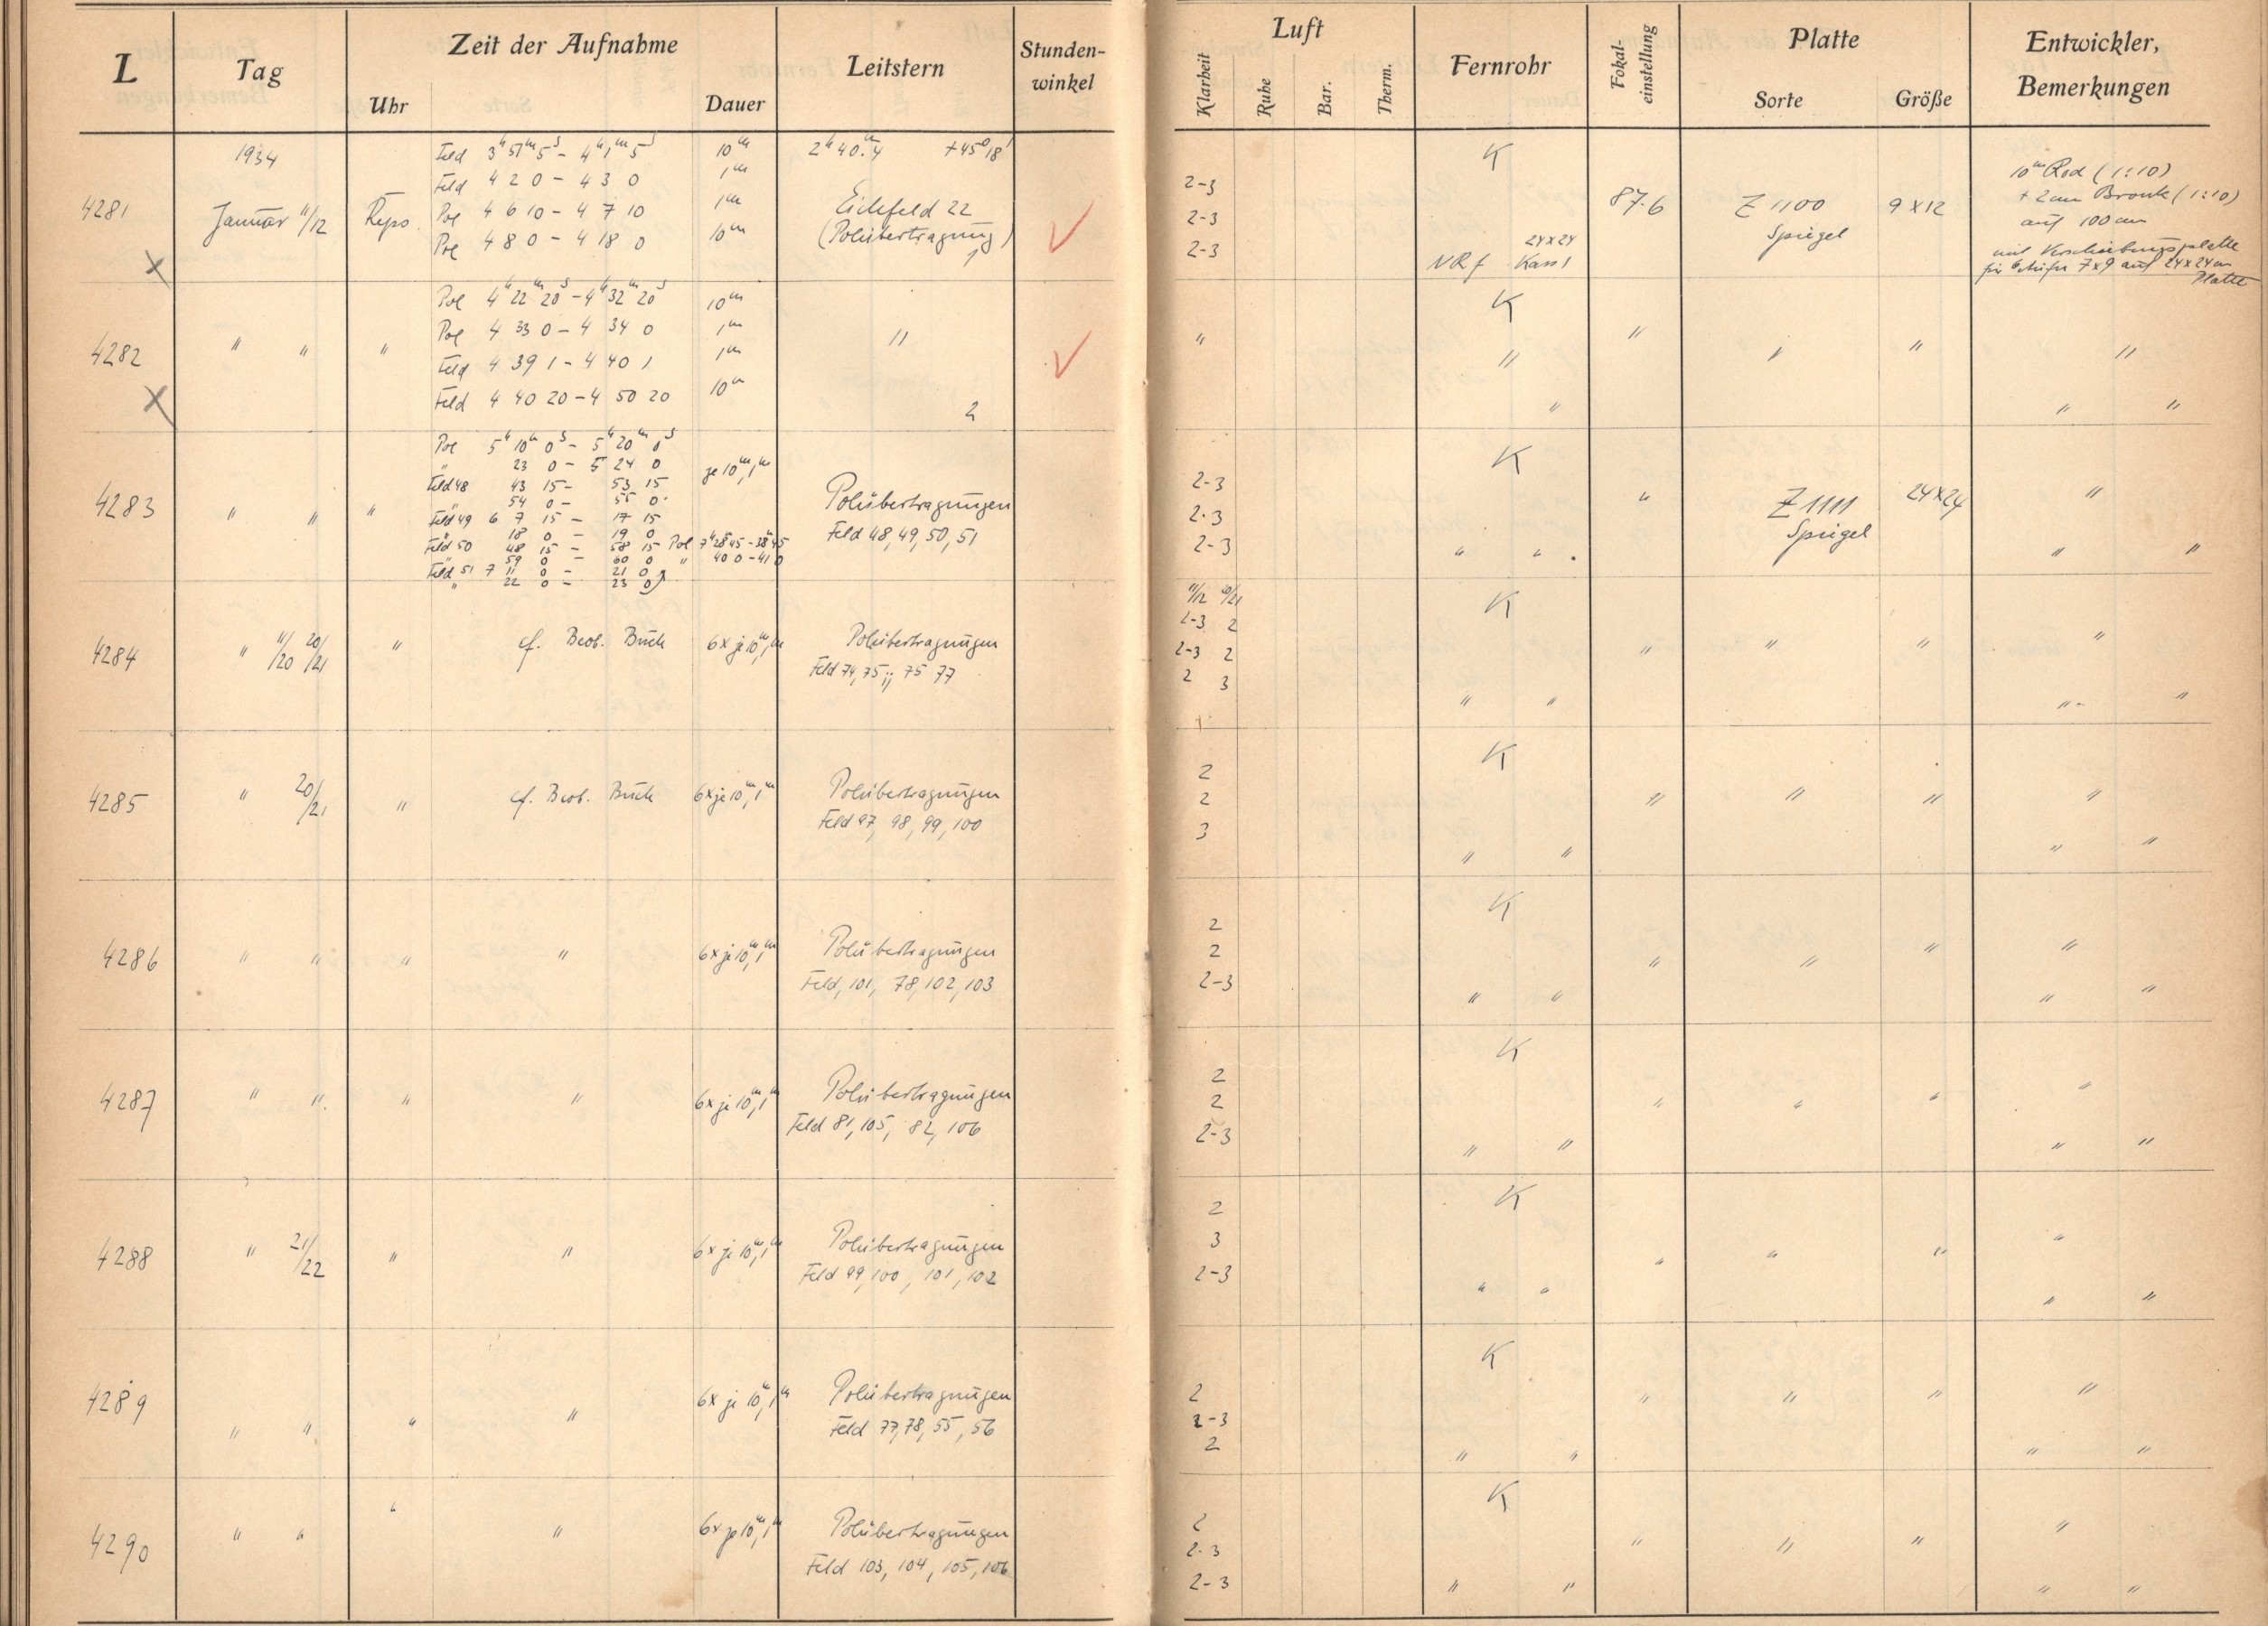 L Tag Zeit der Aufnahme Leitstern Stunden-winkel Luft Fernrohr Fokal-einstellung Platte Entwickler, Bemerkungen
Uhr Dauer Klarheit Ruhe Bar. Therm. Sorte Größe
1934
4281
Januar 11/12
Repo.
Feld 3h 51m 5s - 4h 1m 5s 10m
Feld 4 2 0 - 4 3 0 1m
Pol 4 6 10 - 4 7 10 1m
Pol 4 8 0 - 4 18 0 10m
2h 40.m4 +45° 18'
Eichfeld 22
(Polübertragung)
1
2-3
2-3
2-3
K
24x24
NRf Kass1
87.6
Z 1100
Spiegel
9x12
10m Rod (1:10)
+ 2cm (1:10)
auf 100 cm
mit Verschiebungsplatte
für 7x9 auf 24x24 cm
Platte
X
4282
" " "
Pol 4h 22m 20s - 4h 32m 20s 10m
Pol 4 33 0 - 4 34 0 1m
Feld 4 39 1 - 4 40 1 1m
Feld 4 40 20 - 4 50 20 10m
"
2
"
K
"
"
" " " "
" "
X
4283
" " "
Pol 5h 10m 0s - 5h 20m 0s
" 23 0 - 5 24 0
Feld 48 43 15 - 53 15
" 54 0 - 55 0
Feld 49 6 7 15 - 17 15
" 18 0 - 19 0
Feld 50 48 15 - 58 15 Pol 7h 28m 45 - 38m 45
" 59 0 - 60 0 " 40 0 - 41 0
Feld 51 7 11 0 - 21 0
" 22 0 - 23 0
je 10m, 1m
Polübertragungen
Feld 48, 49, 50, 51
2-3
2-3
2-3
K
" "
"
Z 1111
Spiegel
24x24
"
" "
4284
" 11/20 20/21 "
cf. Beob. Buch 6x je 10m, 1m
Polübertragungen
Feld 74, 75; 75 77
11/12 20/21
2-3 2
2-3 2
2 3
K
" "
" " " "
" "
4285
" 20/21 "
cf. Beob. Buch 6x je 10m, 1m
Polübertragungen
Feld 97, 98, 99, 100
2
2
3
K
" "
" " " "
" "
4286
" " " " 6x je 10m, 1m
Polübertragungen
Feld, 101, 78, 102, 103
2
2
2-3
K
" "
" " " "
" "
4287
" " " " 6x je 10m, 1m
Polübertragungen
Feld 81, 105, 82, 106
2
2
2-3
K
" "
" " " "
" "
4288
" 21/22 " " 6x je 10m, 1m
Polübertragungen
Feld 99, 100, 101, 102
2
3
2-3
K
" "
" " " "
" "
4289
" " " " 6x je 10m, 1m
Polübertragungen
Feld 77, 78, 55, 56
2
2-3
2
K
" "
" " " "
" "
4290
" " " " 6x je 10m, 1m
Polübertragungen
Feld 103, 104, 105, 106
2
2-3
2-3
K
" "
" " "
"
" "